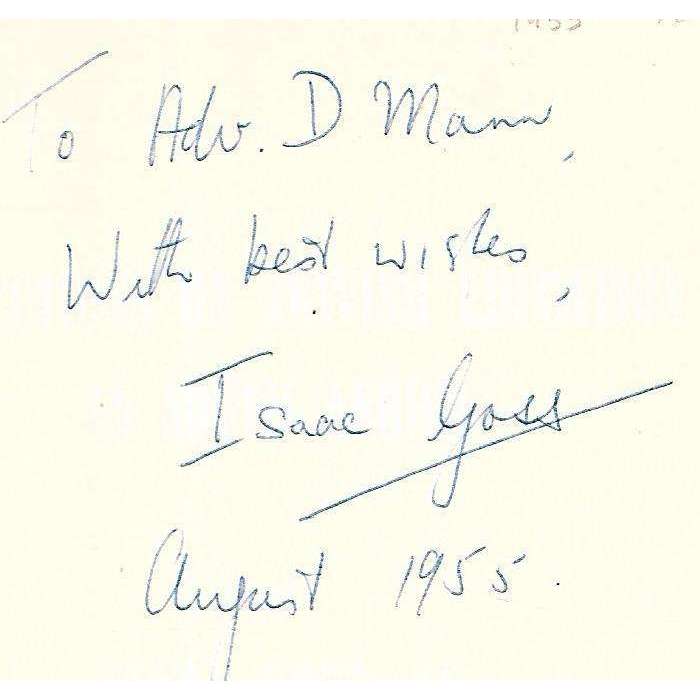 1955
To Adv. D Mann,
With best wishes,
Isaac Goss
August 1955.